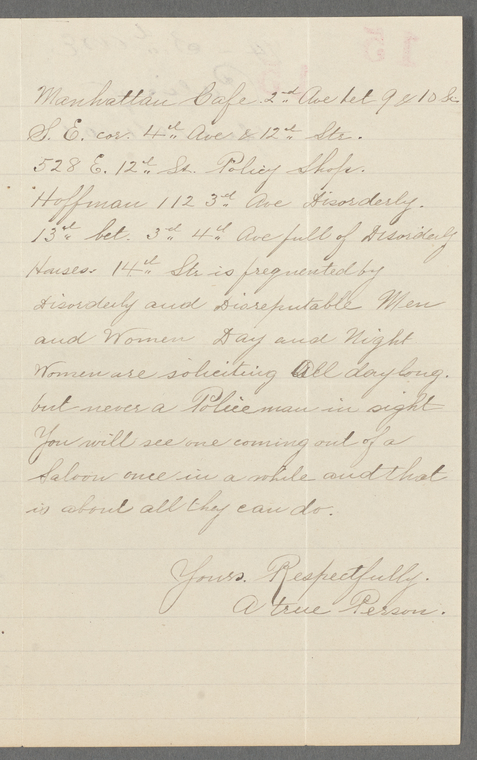 Manhattan Cafe 2nd Ave bet 9 & 10 St.
S. E. cor. 4th Ave & 12th Str.
528 E. 12th St. Policy Shop.
Hoffman 112 3rd Ave Disorderly.
13th bet. 3rd 4th Ave full of Disorderly
Houses. 14th Str is frequented by
Disorderly and Disreputable Men
and Women Day and Night
Women are soliciting All day long.
but never a Policeman in sight
You will see one coming out of a
Saloon once in a while and that
is about all they can do.
Yours. Respectfully.
A true Person.